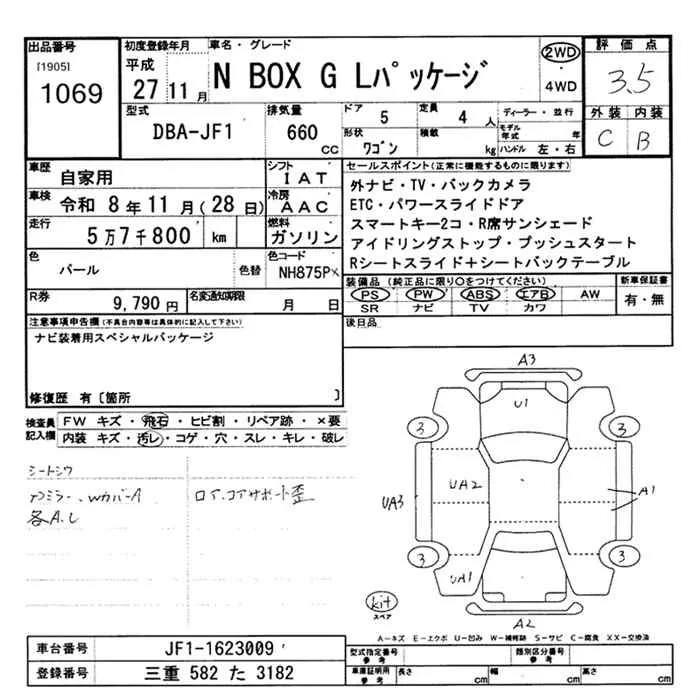 出品番号
[1905]
1069
初度登録年月
平成
27 11月
車名・グレード
N BOX G Lパッケージ
2WD
・
4WD
評価点
3.5
外装 内装
C B
型式
DBA-JF1
排気量
660 CC
ドア 5
定員 4人
形状 ワゴン
積載 kg
ディーラー・並行
モデル年式 年
ハンドル 左・右
車歴 自家用
シフト IAT
車検 令和 8年11月(28日)
冷房 AAC
走行 5万7千800 km
燃料 ガソリン
色 パール
色替
色コード NH875P
R券 9,790円
名変通知期限 月 日
セールスポイント(正常に機能するものに限ります)
外ナビ・TV・バックカメラ
ETC・パワースライドドア
スマートキー2コ・R席サンシェード
アイドリングストップ・プッシュスタート
Rシートスライド+シートバックテーブル
装備品(純正品に限り○をつけてください)
PS PW ABS エアB AW
SR ナビ TV カワ
新車保証書
有・無
後日品
注意事項申告欄(不具合内容等は具体的に記入して下さい)
ナビ装着用スペシャルパッケージ
修復歴 有〔箇所 〕
検査員記入欄
FW キズ・飛石・ヒビ割・リペア跡・×要
内装 キズ・汚レ・コゲ・穴・スレ・キレ・破レ
シートシワ
WカバーA
各A.U
ロア.コアサポート歪
A3
U1
3
3
UA2
UA3
A1
3
3
UA1
kit
スペア
A2
A-キズ E-エクボ U-凹み W-補修跡 S-サビ C-腐食 XX-交換済
車台番号 JF1-1623009
登録番号 三重 582 た 3182
型式指定番号 参考
類別区分番号 参考
車庫証明用 参考
長さ cm
幅 cm
高さ cm